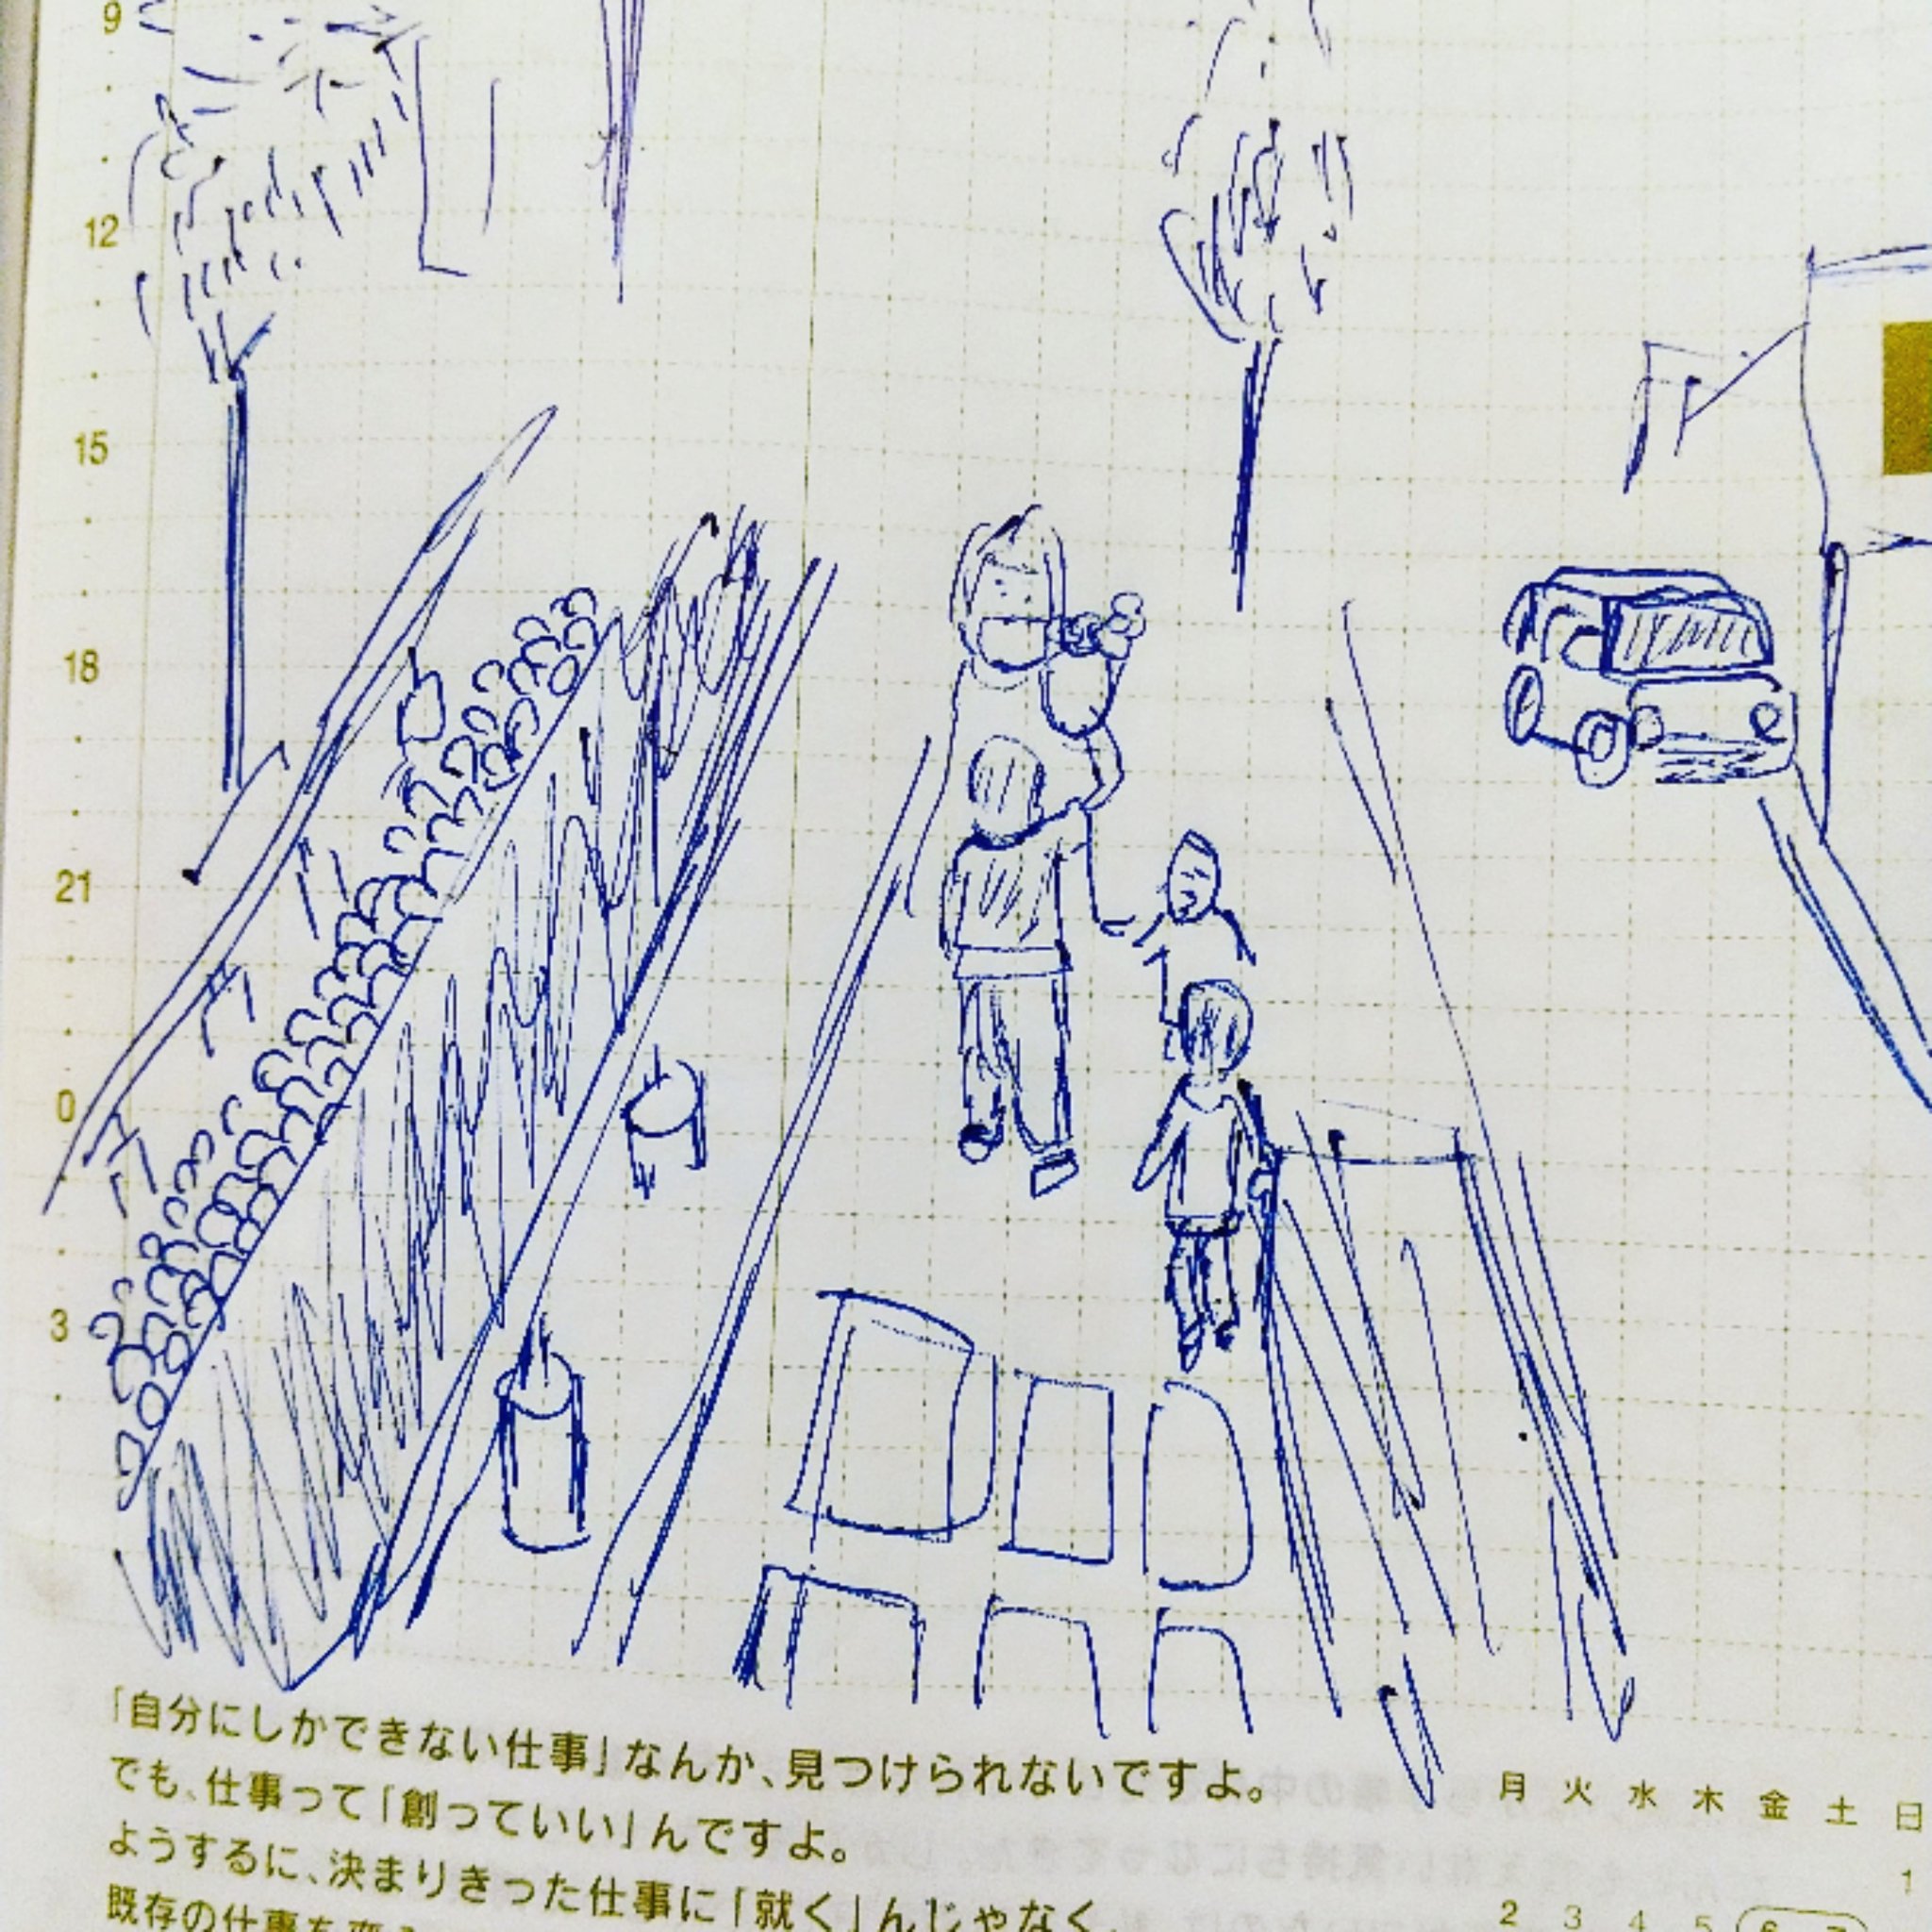 9
12
15
18
21
0
3
「自分にしかできない仕事」なんか、見つけられないですよ。
でも、仕事って「創っていい」んですよ。
ようするに、決まりきった仕事に「就く」んじゃなく、
既存の仕事を変
月 火 水 木 金 土 日
1
2 3 4 5 6 7